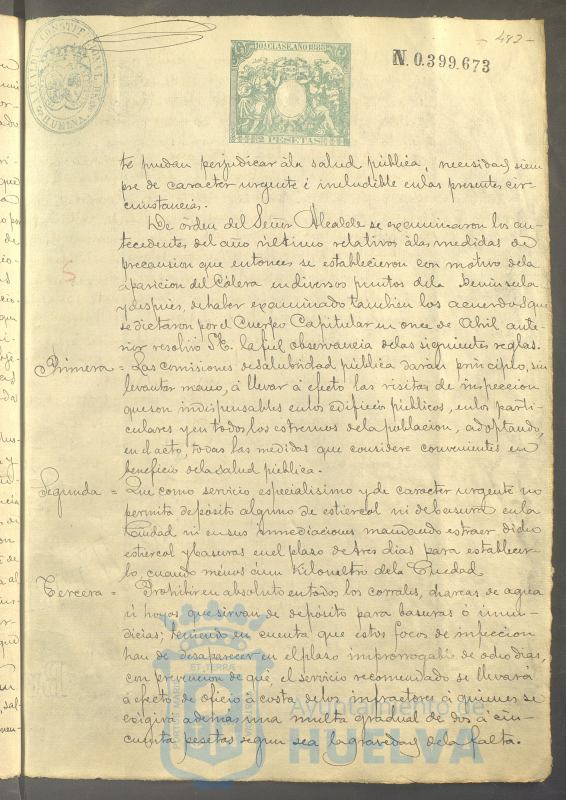 - 483 -
ALCALDIA CONSTITUCIONAL
HUELVA
10A CLASE. AÑO 1885
2 PESETAS
N. 0.399.673
te puedan perjudicar á la salud pública, necesidad siem
pre de caracter urgente é ineludible en las presentes cir-
cunstancias.
De órden del Señor Alcalde se examinaron los an-
tecedentes del año último relativos á las medidas de
precausion que entonces se establecieron con motivo de la
aparicion del Cólera en diversos puntos de la Peninsula
y despues de haber examinado tambien los acuerdos que
se dictaron por el Cuerpo Capitular en once de Abril ante-
rior resolvió S.E. la fiel observancia de las siguientes reglas.
Primera = Las comisiones de salubridad pública darán principio, sin
levantar mano, á llevar á efecto las visitas de inspeccion
que son indispensables en los edificios públicos, en los parti-
culares y en todos los estremos de la poblacion, adoptando,
en el acto, todas las medidas que considere convenientes en
beneficio de la salud pública.
Segunda = Que como servicio especialisimo y de caracter urgente no
permita depósito alguno de estiercol ni de basura en la
Ciudad ni en sus inmediaciones mandando estraer dicho
estiercol y basuras en el plaso de tres dias para establecer-
lo, cuando ménos á un Kilometro de la Ciudad
Tercera = Prohibir en absoluto en todos los corrales, charcas de agua
ú hoyos que sirvan de depósito para basuras ó inmun-
dicias; teniendo en cuenta que estos focos de infeccion
han de desaparecer en el plaso improrrogable de ocho dias,
con prevencion de que el servicio recomendado se llevará
á efecto de oficio á costa de los infractores á quienes se
exigirá ademas una multa gradual de dos á cin-
cuenta pesetas segun sea la gravedad de la falta.
Ayuntamiento de
HUELVA